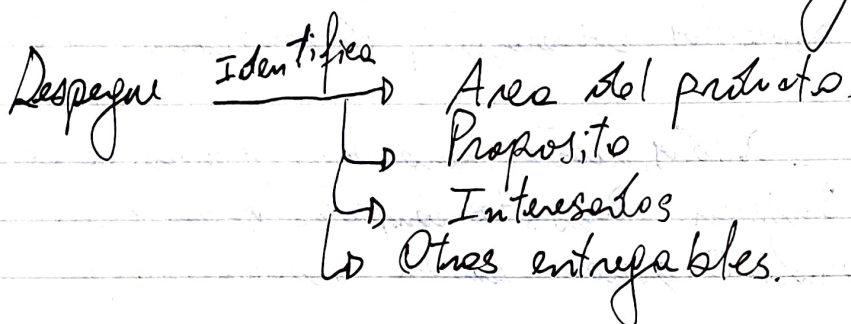 Despegue Identifica Area del producto.
Proposito
Interesados
Otros entregables.